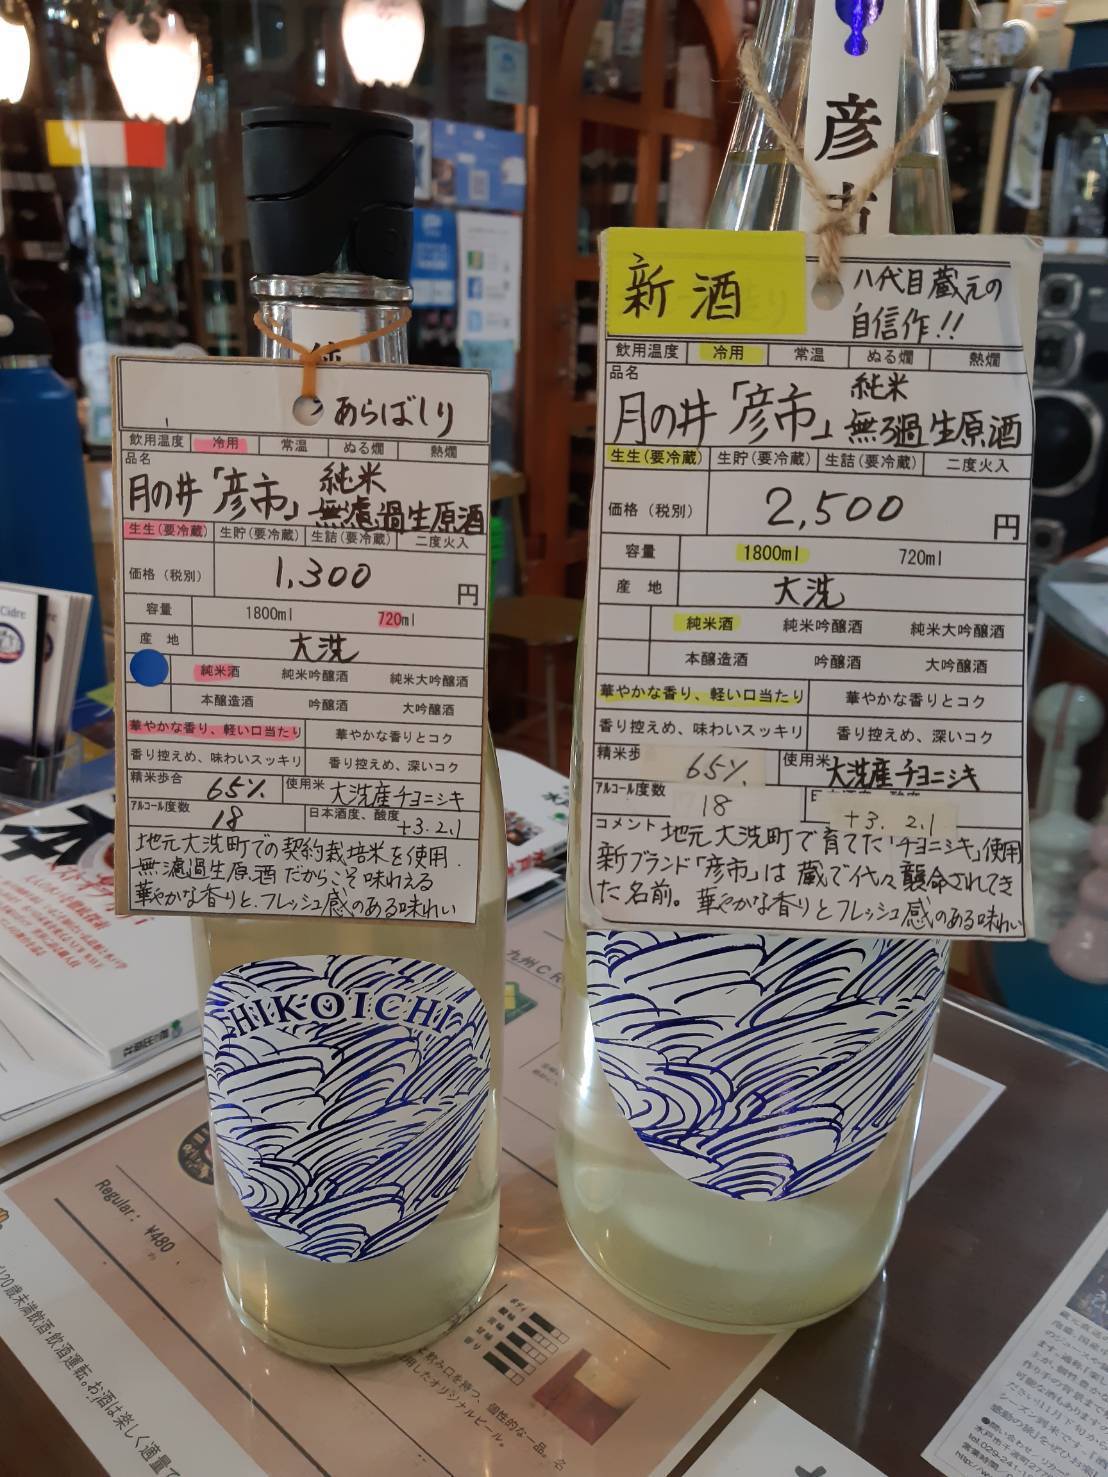 あらばしり
飲用温度 冷用 常温 ぬる燗 熱燗
品名
月の井「彦市」純米
無濾過生原酒
生生(要冷蔵) 生貯(要冷蔵) 生詰(要冷蔵) 二度火入
価格(税別) 1,300 円
容量 1800ml 720ml
産地 大洗
純米酒 純米吟醸酒 純米大吟醸酒
本醸造酒 吟醸酒 大吟醸酒
華やかな香り、軽い口当たり 華やかな香りとコク
香り控えめ、味わいスッキリ 香り控えめ、深いコク
精米歩合 65% 使用米 大洗産チヨニシキ
アルコール度数 18 日本酒度、酸度 +3. 2.1
地元大洗町での契約栽培米を使用.
無濾過生原酒だからこそ味わえる
華やかな香りと、フレッシュ感のある味わい
HIKOICHI
彦市
新酒
八代目蔵元の
自信作!!
飲用温度 冷用 常温 ぬる燗 熱燗
品名
月の井「彦市」純米
無ろ過生原酒
生生(要冷蔵) 生貯(要冷蔵) 生詰(要冷蔵) 二度火入
価格(税別) 2,500 円
容量 1800ml 720ml
産地 大洗
純米酒 純米吟醸酒 純米大吟醸酒
本醸造酒 吟醸酒 大吟醸酒
華やかな香り、軽い口当たり 華やかな香りとコク
香り控えめ、味わいスッキリ 香り控えめ、深いコク
精米歩 65% 使用米 大洗産チヨニシキ
アルコール度数 18 +3. 2.1
コメント 地元大洗町で育てた「チヨニシキ」使用
新ブランド「彦市」は蔵で代々襲命されてき
た名前。華やかな香りとフレッシュ感のある味わい
Regular: ¥480
20歳未満飲酒・飲酒運転。お酒は楽しく適量で